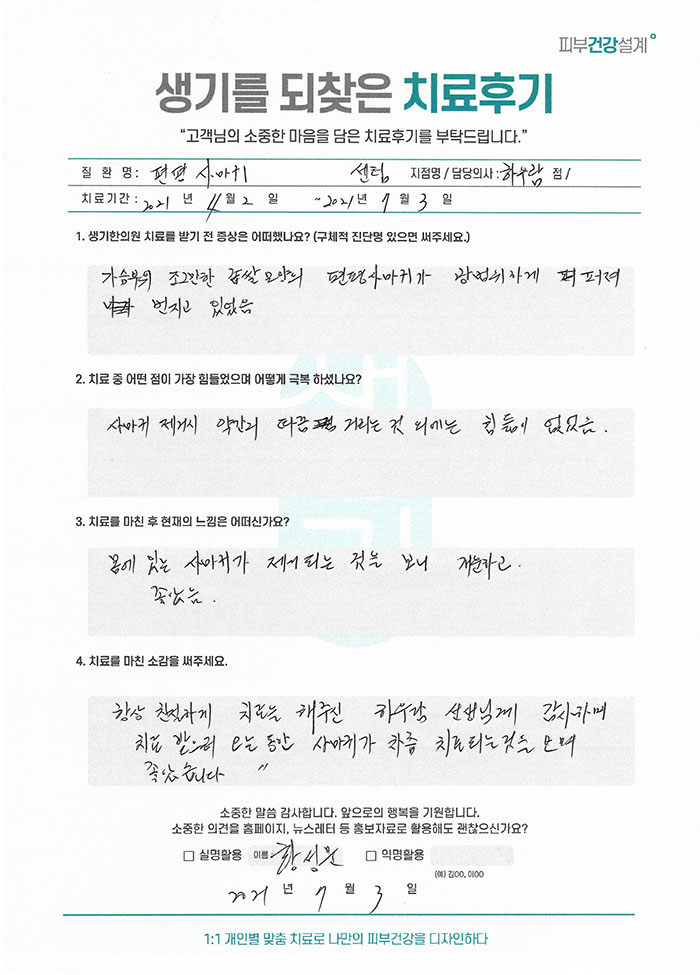 피부건강설계
생기를 되찾은 치료후기
“고객님의 소중한 마음을 담은 치료후기를 부탁드립니다.”
질 환 명 : 편편 사마귀 센텀 지점명 / 담당의사 : 하우람 점 /
치료기간 : 2021 년 4월 2 일 ~2021 년 7 월 3 일
1. 생기한의원 치료를 받기 전 증상은 어떠했나요? (구체적 진단명 있으면 써주세요.)
가슴부위 조그만한 좁쌀 모양의 편평사마귀가 광범위하게 퍼져
번지고 있었음
2. 치료 중 어떤 점이 가장 힘들었으며 어떻게 극복 하셨나요?
사마귀 제거시 약간의 따끔 거리는 것 외에는 힘듦이 없었음.
3. 치료를 마친 후 현재의 느낌은 어떠신가요?
몸에 있는 사마귀가 제거되는 것을 보니 개운하고.
좋았음.
4. 치료를 마친 소감을 써주세요.
항상 친절하게 치료를 해주신 하우람 선생님께 감사하며
치료 받으러 오는 동안 사마귀가 차츰 치료되는것을 보며
좋았습니다 〃
소중한 말씀 감사합니다. 앞으로의 행복을 기원합니다.
소중한 의견을 홈페이지, 뉴스레터 등 홍보자료로 활용해도 괜찮으신가요?
□ 실명활용 이름 황성원 □ 익명활용
(예) 김OO, 이OO
2021 년 7 월 3 일
1:1 개인별 맞춤 치료로 나만의 피부건강을 디자인하다